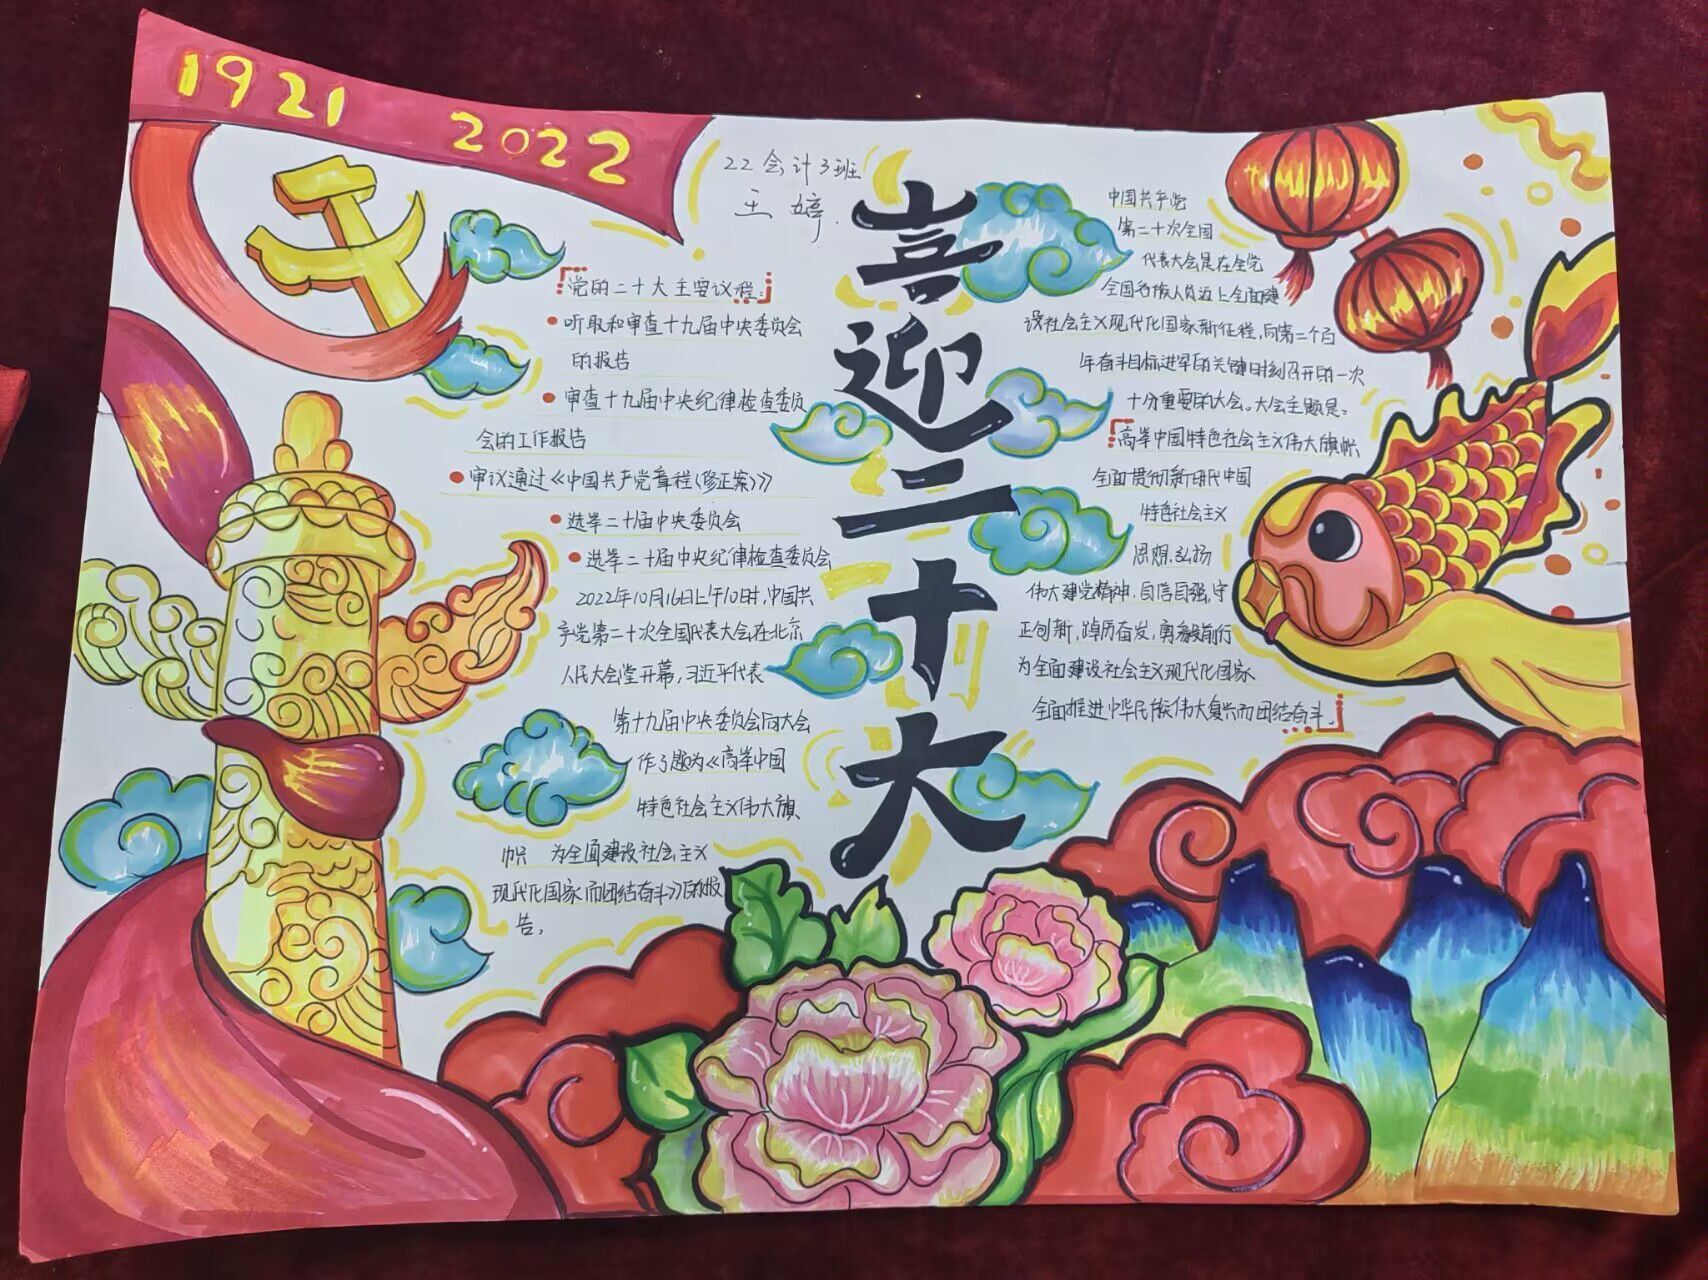 1921
2022
22会计3班
王婷.
喜迎二十大
党的二十大主要议程:
听取和审查十九届中央委员会
的报告
审查十九届中央纪律检查委员
会的工作报告
审议通过《中国共产党章程(修正案)》
选举二十届中央委员会
选举二十届中央纪律检查委员会
2022年10月16日上午10时,中国共
产党第二十次全国代表大会在北京
人民大会堂开幕,习近平代表
第十九届中央委员会向大会
作了题为《高举中国
特色社会主义伟大旗
帜 为全面建设社会主义
现代化国家而团结奋斗》的报
告。
中国共产党
第二十次全国
代表大会是在全党
全国各族人民迈上全面建
设社会主义现代化国家新征程,向第二个百
年奋斗目标进军的关键时刻召开的一次
十分重要的大会。大会主题是:
高举中国特色社会主义伟大旗帜
全面贯彻新时代中国
特色社会主义
思想.弘扬
伟大建党精神.自信自强,守
正创新,踔厉奋发,勇毅前行
为全面建设社会主义现代化国家
全面推进中华民族伟大复兴而团结奋斗.